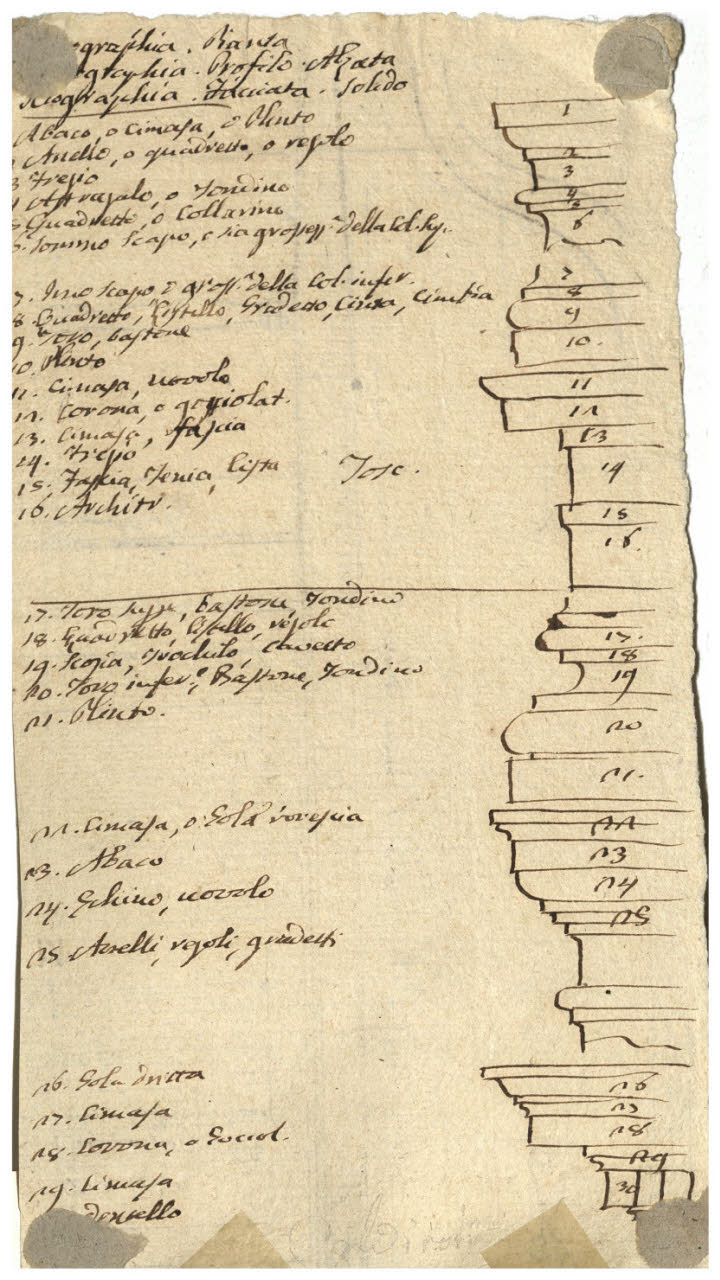 graphia. Pianta
graphia. Profilo. Alzata
graphia. Facciata. Solido
Abaco, o Cimasa, o Plinto
Anello, o quadretto, o regolo
3 Fregio
Astragalo, o Tondino
Quadretto, o Collarino
Sommo Scapo, o sia della Col.
7. Imo Scapo della Col. infer.
8. Quadretto, Listello, Gradetto, Cinta, Cimbia
9. Toro, bastone
10. Plinto
11. Cimasa, uovolo
12. Corona, o gocciolat.
13. Cimasa, fascia
14. Fregio
15. Fascia, Tenia, Lista
Tosc.
16. Architr.
17. Toro supr., bastone, Tondino
18. Quadretto, Listello, regolo
19. Scozia, Trochilo, Cavetto
20. Toro infer.e, Bastone, Tondino
21. Plinto.
22. Cimasa, o Gola rovescia
23. Abaco
24. Echino, uovolo
25. Anelli, regoli, gradetti
26. Gola dritta
27. Cimasa
28. Corona, o Gocciol.
29. Cimasa
dentello
1
2
3
4
5
6
7
8
9
10.
11
12
13
14
15
16.
17.
18
19
20
21.
22
23
24
25
26
27
28
29
30